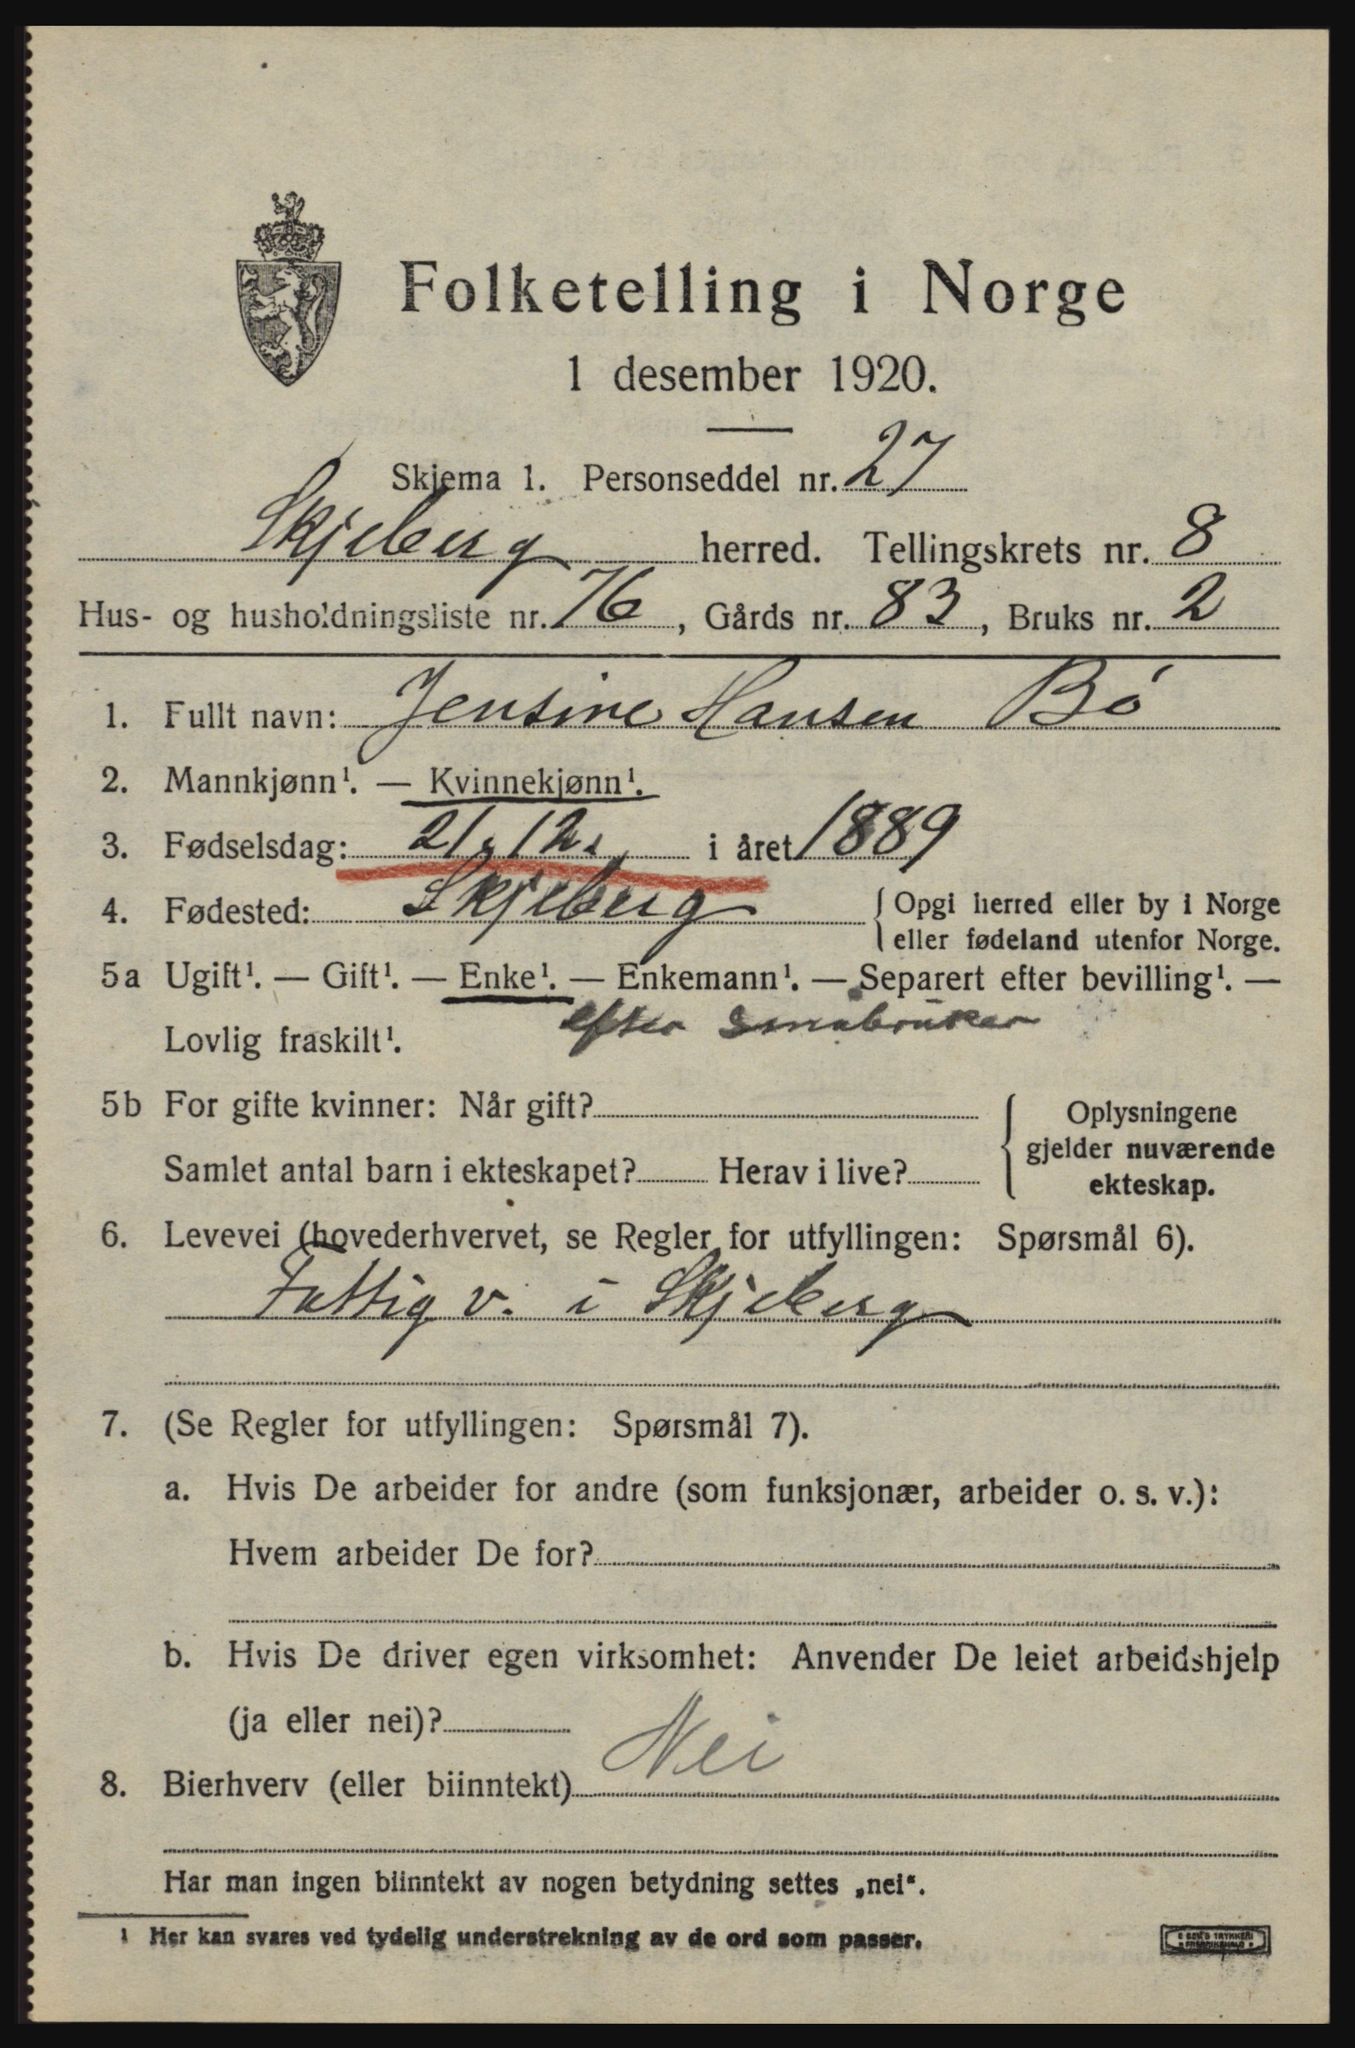 Folketelling i Norge
1 desember 1920.
Skjema 1. Personseddel nr. 27
Skjeberg herred. Tellingskrets nr. 8
Hus- og husholdningsliste nr. 76, Gårds nr. 83, Bruks nr. 2
1. Fullt navn: Jensine Hansen Bö
2. Mannkjønn¹. — Kvinnekjønn¹.
3. Fødselsdag: 21. 12. i året 1889
4. Fødested: Skjeberg { Opgi herred eller by i Norge
eller fødeland utenfor Norge.
5a Ugift¹. — Gift¹. — Enke¹. — Enkemann¹. — Separert efter bevilling¹. —
efter småbruker
Lovlig fraskilt¹.
5b For gifte kvinner: Når gift?
Samlet antal barn i ekteskapet? Herav i live?
{ Oplysningene
gjelder nuværende
ekteskap.
6. Levevei (hovederhvervet, se Regler for utfyllingen: Spørsmål 6).
Fattig v. i Skjeberg
7. (Se Regler for utfyllingen: Spørsmål 7).
a. Hvis De arbeider for andre (som funksjonær, arbeider o. s. v.):
Hvem arbeider De for?
b. Hvis De driver egen virksomhet: Anvender De leiet arbeidshjelp
(ja eller nei)?
8. Bierhverv (eller biinntekt) Nei
Har man ingen biinntekt av nogen betydning settes „nei“.
1 Her kan svares ved tydelig understrekning av de ord som passer.